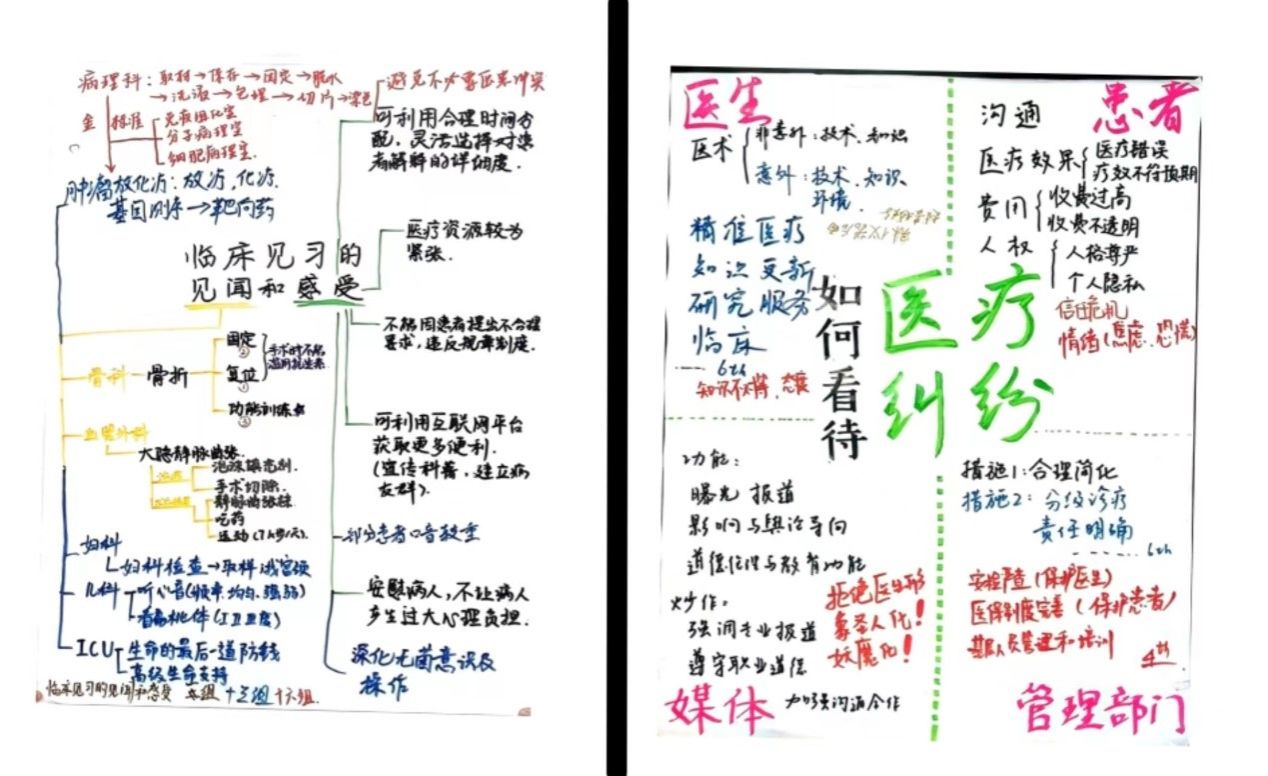 病理科：取材→保存→固定→脱水
→洗涤→包埋→切片→染色
金标准
免疫固化室
分子病理室
细胞病理室.
肿瘤放化疗：放疗、化疗.
基因测序→靶向药
临床见习的
见闻和感受
骨科
骨折
固定
②
复位
①
功能训练
③
血管外科
大隐静脉曲张.
手术切除.
吃药
妇科
妇科检查→取样
儿科
听心音(频率.均匀.强弱)
看扁桃体(ⅠⅡⅢ度)
ICU
生命的最后一道防线
高级生命支持
临床见习的见闻和感受
十三组
十六组.
避免不必要医患冲突
可利用合理时间分
配，灵活选择对患
者解释的详细度.
医疗资源较为
紧张.
不能因患者提出不合理
要求，违反规章制度.
可利用互联网平台
获取更多便利.
(宣传科普，建立病
友群).
部分患者口音较重
安慰病人，不让病人
产生过大心理负担.
深化无菌意识及
操作
医生
医术
非意外：技术、知识
意外：技术、知识、
环境.
精准医疗
知识更新
研究服务
临床
6th
如何看待
医疗
纠纷
患者
沟通
医疗效果
医疗错误
疗效不符预期
费用
收费过高
收费不透明
人权
人格尊严
个人隐私
信任危机
情绪(焦虑、恐慌)
功能：
曝光报道
影响与舆论导向
道德传播与教育功能
炒作：
强调专业报道
遵守职业道德
加强沟通合作
拒绝医生形
象圣人化！
妖魔化！
媒体
措施1：合理简化
措施2：分级诊疗
责任明确
6th
安检严查(保护医生)
医保制度完善(保护患者)
4th
管理部门